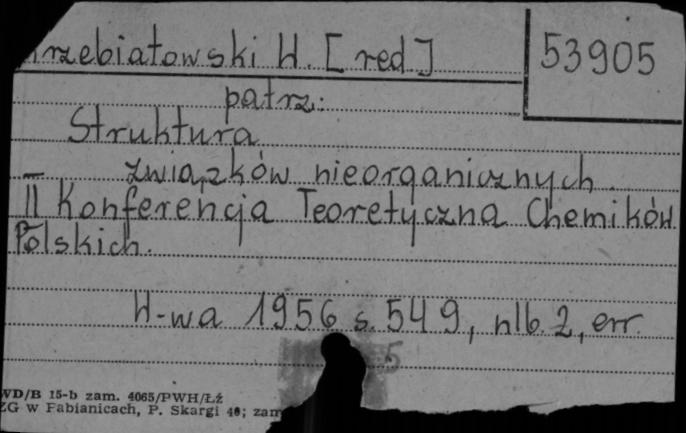 rzebiatowski W. [red]
53905
patrz:
Struktura
związków nieorganicznych.
II Konferencja Teoretyczna Chemików
Polskich.
W-wa 1956 s. 549, nlb. 2, err.
5
WD/B 15-b zam. 4065/PWH/Łź
ZG w Pabianicach, P. Skargi 40; zam